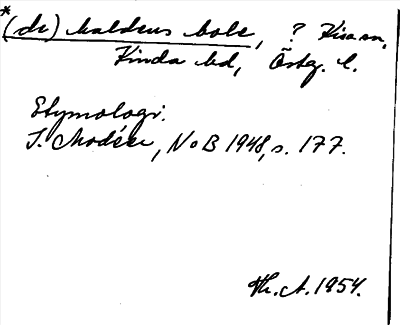 *(de) haldens bole, ? Kisa sn,
Kinda hd, Östg. l.
Etymologi.
I. Modéer, NoB 1948, s. 177.
Th. A. 1954.